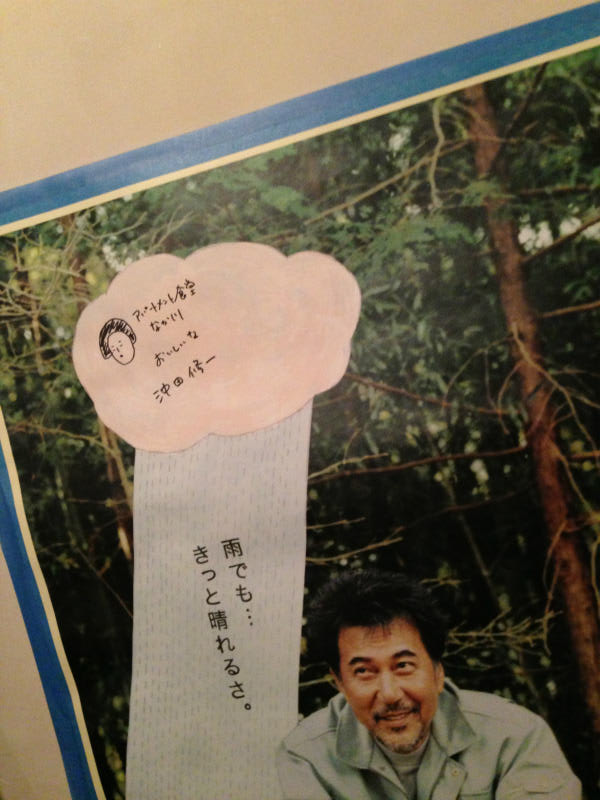 アパートメント食堂
なか川
おいしいな
沖田修一
雨でも…
きっと晴れるさ。